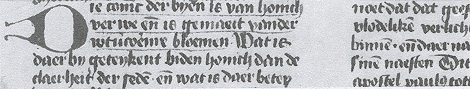 ie comt der byen is van honich
Duer we en̄ is gemaect vander
bloemen. Wat is
daer by geteykent biden honich dan de
claerheit der sede. en̄ wat is daer betep
noet dat dat gees
vlodelikē verlich
binnē. en̄ daer na
sinē naesten
apostel paulꝯ tot